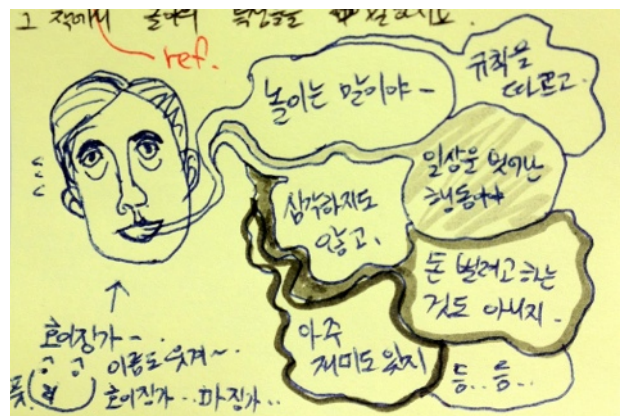 그 책에서 놀이의 특징들을
ref.
놀이는 말이야~
규칙을
따르고.
일상을 벗어난
행동이야
심각하지도
않고.
돈 벌려고 하는
것도 아니지.
아주
재미도 있지
등..등..
호이징가~.
이름도 웃겨~.
호이징가...파징가..
풋.